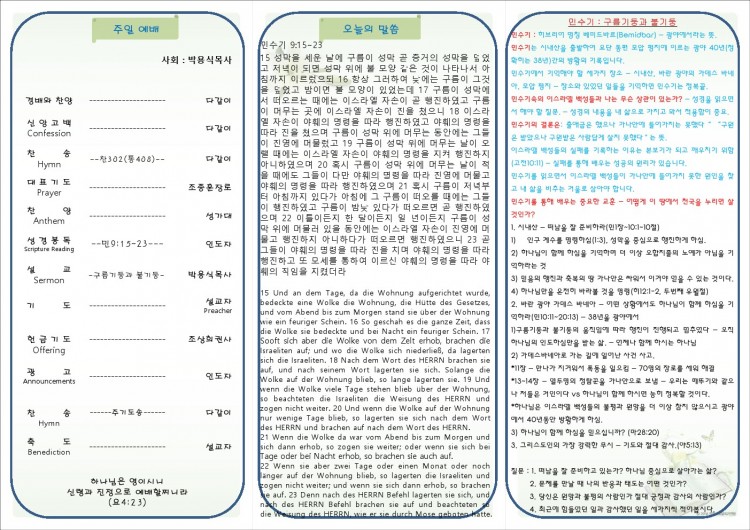 주일 예배
사회 : 박용식목사
경배와 찬양 ---------------- 다같이
신앙고백 ---------------- 다같이
Confession
찬 송 --찬302(통408)-- 다같이
Hymn
대표기도 ---------------- 조종훈장로
Prayer
찬 양 ---------------- 성가대
Anthem
성경봉독 --민9:15-23--- 인도자
Scripture Reading
설 교 -구름기둥과 불기둥- 박용식목사
Sermon
기 도 ---------------- 설교자
Preacher
헌금기도 ---------------- 조상희권사
Offering
광 고 ---------------- 인도자
Announcements
찬 송 ------주기도송------ 다같이
Hymn
축 도 ---------------- 설교자
Benediction
하나님은 영이시니
신령과 진정으로 예배할찌니라
(요4:23)
오늘의 말씀
민수기 9:15-23
15 성막을 세운 날에 구름이 성막 곧 증거의 성막을 덮었
고 저녁이 되면 성막 위에 불 모양 같은 것이 나타나서 아
침까지 이르렀으되 16 항상 그러하여 낮에는 구름이 그것
을 덮었고 밤이면 불 모양이 있었는데 17 구름이 성막에
서 떠오르는 때에는 이스라엘 자손이 곧 행진하였고 구름
이 머무는 곳에 이스라엘 자손이 진을 쳤으니 18 이스라
엘 자손이 야훼의 명령을 따라 행진하였고 야훼의 명령을
따라 진을 쳤으며 구름이 성막 위에 머무는 동안에는 그들
이 진영에 머물렀고 19 구름이 성막 위에 머무는 날이 오
랠 때에는 이스라엘 자손이 야훼의 명령을 지켜 행진하지
아니하였으며 20 혹시 구름이 성막 위에 머무는 날이 적
을 때에도 그들이 다만 야훼의 명령을 따라 진영에 머물고
야훼의 명령을 따라 행진하였으며 21 혹시 구름이 저녁부
터 아침까지 있다가 아침에 그 구름이 떠오를 때에는 그들
이 행진하였고 구름이 밤낮 있다가 떠오르면 곧 행진하였
으며 22 이틀이든지 한 달이든지 일 년이든지 구름이 성
막 위에 머물러 있을 동안에는 이스라엘 자손이 진영에 머
물고 행진하지 아니하다가 떠오르면 행진하였으니 23 곧
그들이 야훼의 명령을 따라 진을 치며 야훼의 명령을 따라
행진하고 또 모세를 통하여 이르신 야훼의 명령을 따라 야
훼의 직임을 지켰더라
15 Und an dem Tage, da die Wohnung aufgerichtet wurde,
bedeckte eine Wolke die Wohnung, die Hütte des Gesetzes,
und vom Abend bis zum Morgen stand sie über der Wohnung
wie ein feuriger Schein. 16 So geschah es die ganze Zeit, dass
die Wolke sie bedeckte und bei Nacht ein feuriger Schein. 17
Sooft sich aber die Wolke von dem Zelt erhob, brachen die
Israeliten auf; und wo die Wolke sich niederließ, da lagerten
sich die Israeliten. 18 Nach dem Wort des HERRN brachen sie
auf, und nach seinem Wort lagerten sie sich. Solange die
Wolke auf der Wohnung blieb, so lange lagerten sie. 19 Und
wenn die Wolke viele Tage stehen blieb über der Wohnung,
so beachteten die Israeliten die Weisung des HERRN und
zogen nicht weiter. 20 Und wenn die Wolke auf der Wohnung
nur wenige Tage blieb, so lagerten sie sich nach dem Wort
des HERRN und brachen auf nach dem Wort des HERRN.
21 Wenn die Wolke da war vom Abend bis zum Morgen und
sich dann erhob, so zogen sie weiter; oder wenn sie sich bei
Tage oder bei Nacht erhob, so brachen sie auch auf.
22 Wenn sie aber zwei Tage oder einen Monat oder noch
länger auf der Wohnung blieb, so lagerten die Israeliten und
zogen nicht weiter; und wenn sie sich dann erhob, so brachen
sie auf. 23 Denn nach des HERRN Befehl lagerten sie sich, und
nach des HERRN Befehl brachen sie auf und beachteten so
die Weisung des HERRN, wie er sie durch Mose geboten hatte.
민수기 : 구름기둥과 불기둥
민수기 : 히브리어 명칭 베미드바르(Bemidbar) - 광야에서라는 뜻.
민수기는 시내산을 출발하여 요단 동편 모압 평지에 이르는 광야 40년(정
확히는 38년)간의 방황의 기록입니다.
민수기에서 기억해야 할 세가지 장소 - 시내산, 바란 광야의 가데스 바네
아, 모압 평지 - 장소와 있었던 일들을 기억하면 민수기는 정복끝.
민수기속의 이스라엘 백성들과 나는 무슨 상관이 있는가? - 성경을 읽으면
서 해야 할 질문. - 성경의 내용을 내 삶으로 가지고 와서 적용함이 중요.
민수기의 결론은: 출애굽은 했으나 가나안에 들어가지는 못했다 " "구원
은 받았으나 구원받은 사람답게 살지 못했다 " 는 뜻.
이스라엘 백성들의 실패를 기록하는 이유는 본보기가 되고 깨우치기 위함
(고전10:11) - 실패를 통해 배우는 성공의 원리가 있습니다.
민수기를 읽으면서 이스라엘 백성들이 가나안에 들어가지 못한 원인을 찾
고 내 삶을 비추는 거울로 삼아야 합니다.
민수기를 통해 배우는 중요한 교훈 - 어떻게 이 땅에서 천국을 누리면 살
것인가?
1. 시내산 - 떠남을 잘 준비하라(민1장-10:1-10절)
1) 인구 계수를 명령하심(1:3), 성막을 중심으로 행진하게 하심.
2) 하나님이 함께 하심을 기억하며 더 이상 오합지졸의 노예가 아님을 기
억하라는 것
3) 믿음의 행진과 축복의 땅 가나안은 싸워서 이겨야 얻을 수 있는 것이다.
4) 하나님만을 온전히 바라볼 것을 명령(히12:1-2, 두번째 유월절)
2. 바란 광야 가데스 바네아 - 어떤 상황에서도 하나님이 함께 하심을 기
억하라(민10:11-20:13) - 38년을 광야에서
1)구름기둥과 불기둥의 움직임에 따라 행진이 진행되고 멈추었다 - 오직
하나님의 인도하심만을 받는 삶. - 언제나 함께 하시는 하나님
2) 가데스바네아로 가는 길에 일어난 사건 사고.
*11장 - 만나가 지겨워서 폭동을 일으킴 - 70명의 장로를 세워 해결
*13-14장 - 열두명의 정탐꾼을 가나안으로 보냄 - 우리는 메뚜기와 같으
나 저들은 거인이다 vs 하나님이 함께 하시면 능히 정복할 것이다.
*하나님은 이스라엘 백성들의 불평과 원망을 더 이상 참지 않으시고 광야
에서 40년동안 방황하게 하심.
3) 하나님이 함께 하심을 믿으십니까? (마28:20)
3. 그리스도인의 가장 강력한 무시 - 기도와 절대 감사.(약5:13)
질문 : 1. 떠남을 잘 준비하고 있는가? 하나님 중심으로 살아가는 삶?
2. 문제를 만날 때 나의 반응과 태도는 어떤 것인가?
3. 당신은 원망과 불평의 사람인가 절대 긍정과 감사의 사람인가?
4. 최근에 힘들었던 일과 감사했던 일을 세가지씩 적어봅시다.